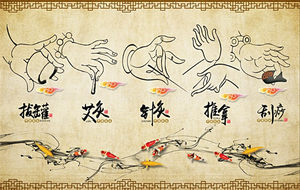 拔罐
艾灸
针灸
推拿
刮痧